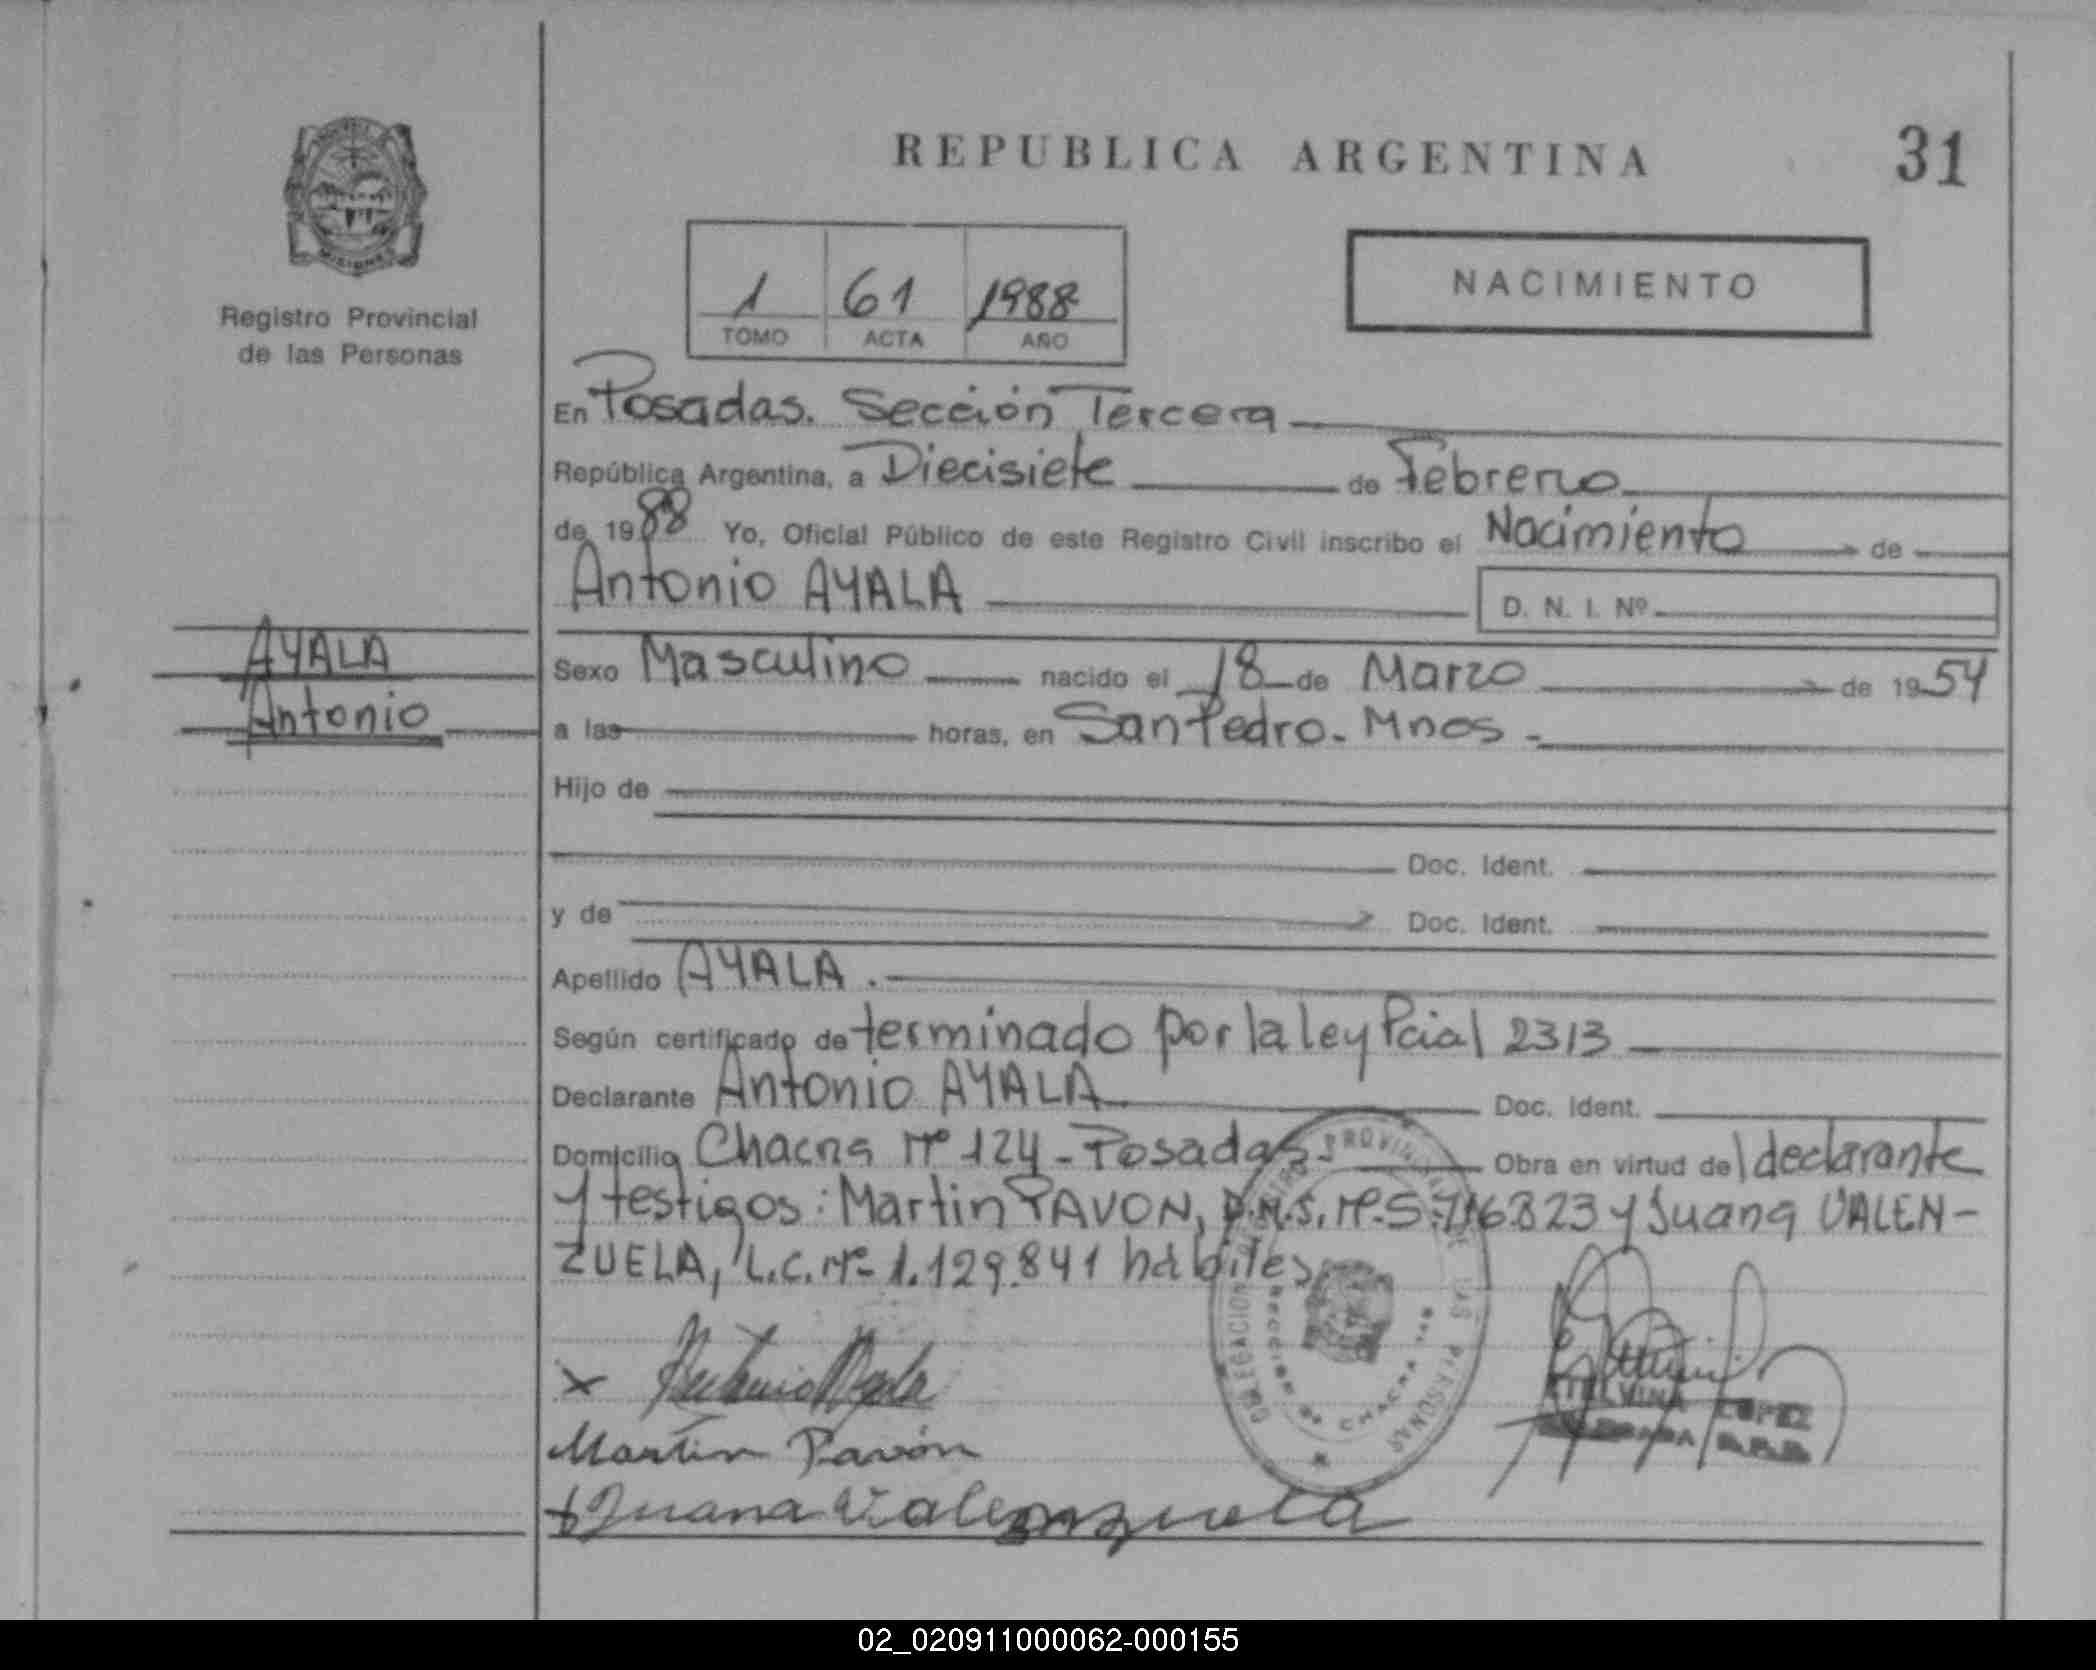 REPUBLICA ARGENTINA
31
MISIONES
Registro Provincial
de las Personas
1 61 1988
TOMO ACTA AÑO
NACIMIENTO
En Posadas. Sección Tercera
República Argentina, a Diecisiete de Febrero
de 1988 Yo, Oficial Público de este Registro Civil inscribo el Nacimiento de
Antonio AYALA D. N. I. Nº
AYALA
Antonio
Sexo Masculino nacido el 18 de Marzo de 1954
a las horas, en San Pedro. Mnes.
Hijo de
Doc. Ident.
y de Doc. Ident.
Apellido AYALA.
Según certificado de terminado por la ley Pcial 2313
Declarante Antonio AYALA Doc. Ident.
Domicilio Chacra Nº 124 - Posadas Obra en virtud del declarante
y testigos: Martin PAVON, Nº 823 y Juana VALEN-
ZUELA, L.C. Nº 1.129.841 hábiles
DELEGACION PROVINCIAL DE LAS PERSONAS
CHACRA
Antonio Ayala
LOPEZ
Martín Pavón
Juana Valenzuela
02_020911000062-000155